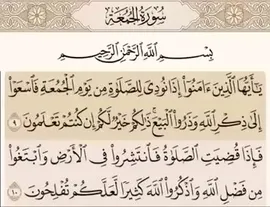 سُورَةُ الجُمُعَةِ
بِسْمِ اللَّهِ الرَّحْمَٰنِ الرَّحِيمِ
يَٰٓأَيُّهَا ٱلَّذِينَ ءَامَنُوٓا۟ إِذَا نُودِىَ لِلصَّلَوٰةِ مِن يَوْمِ ٱلْجُمُعَةِ فَٱسْعَوْا۟
إِلَىٰ ذِكْرِ ٱللَّهِ وَذَرُوا۟ ٱلْبَيْعَ ۚ ذَٰلِكُمْ خَيْرٌ لَّكُمْ إِن كُنتُمْ تَعْلَمُونَ ٩
فَإِذَا قُضِيَتِ ٱلصَّلَوٰةُ فَٱنتَشِرُوا۟ فِى ٱلْأَرْضِ وَٱبْتَغُوا۟
مِن فَضْلِ ٱللَّهِ وَٱذْكُرُوا۟ ٱللَّهَ كَثِيرًا لَّعَلَّكُمْ تُفْلِحُونَ ١٠